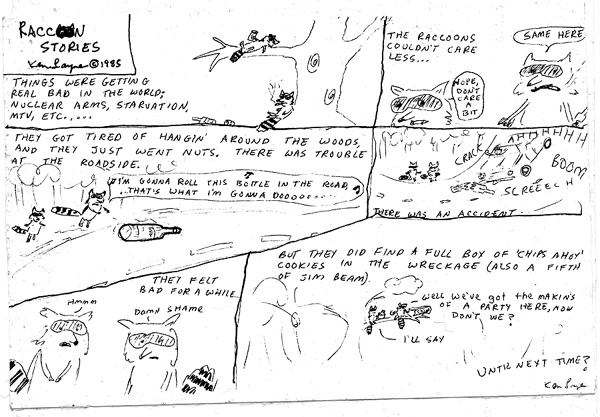 RACCOON
STORIES
Ken Layne ©1985
THINGS WERE GETTING
REAL BAD IN THE WORLD;
NUCLEAR ARMS, STARVATION,
MTV, ETC.,...
THE RACCOONS
COULDN'T CARE
LESS...
NOPE,
DON'T
CARE
A
BIT
SAME HERE
THEY GOT TIRED OF HANGIN' AROUND THE WOODS,
AND THEY JUST WENT NUTS. THERE WAS TROUBLE
AT THE ROADSIDE.
I'M GONNA ROLL THIS BOTTLE IN THE ROAD,
...THAT'S WHAT I'M GONNA DOOOO....
CRACK
AHHHHHH
BOOM
SCREEECH
THERE WAS AN ACCIDENT.
THEY FELT
BAD FOR A WHILE...
HMMM
DAMN SHAME
BUT THEY DID FIND A FULL BOX OF 'CHIPS AHOY'
COOKIES IN THE WRECKAGE (ALSO A FIFTH
OF JIM BEAM).
WELL WE'VE GOT THE MAKIN'S
OF A PARTY HERE, NOW
DON'T WE?
I'LL SAY
UNTIL NEXT TIME?
Ken Layne